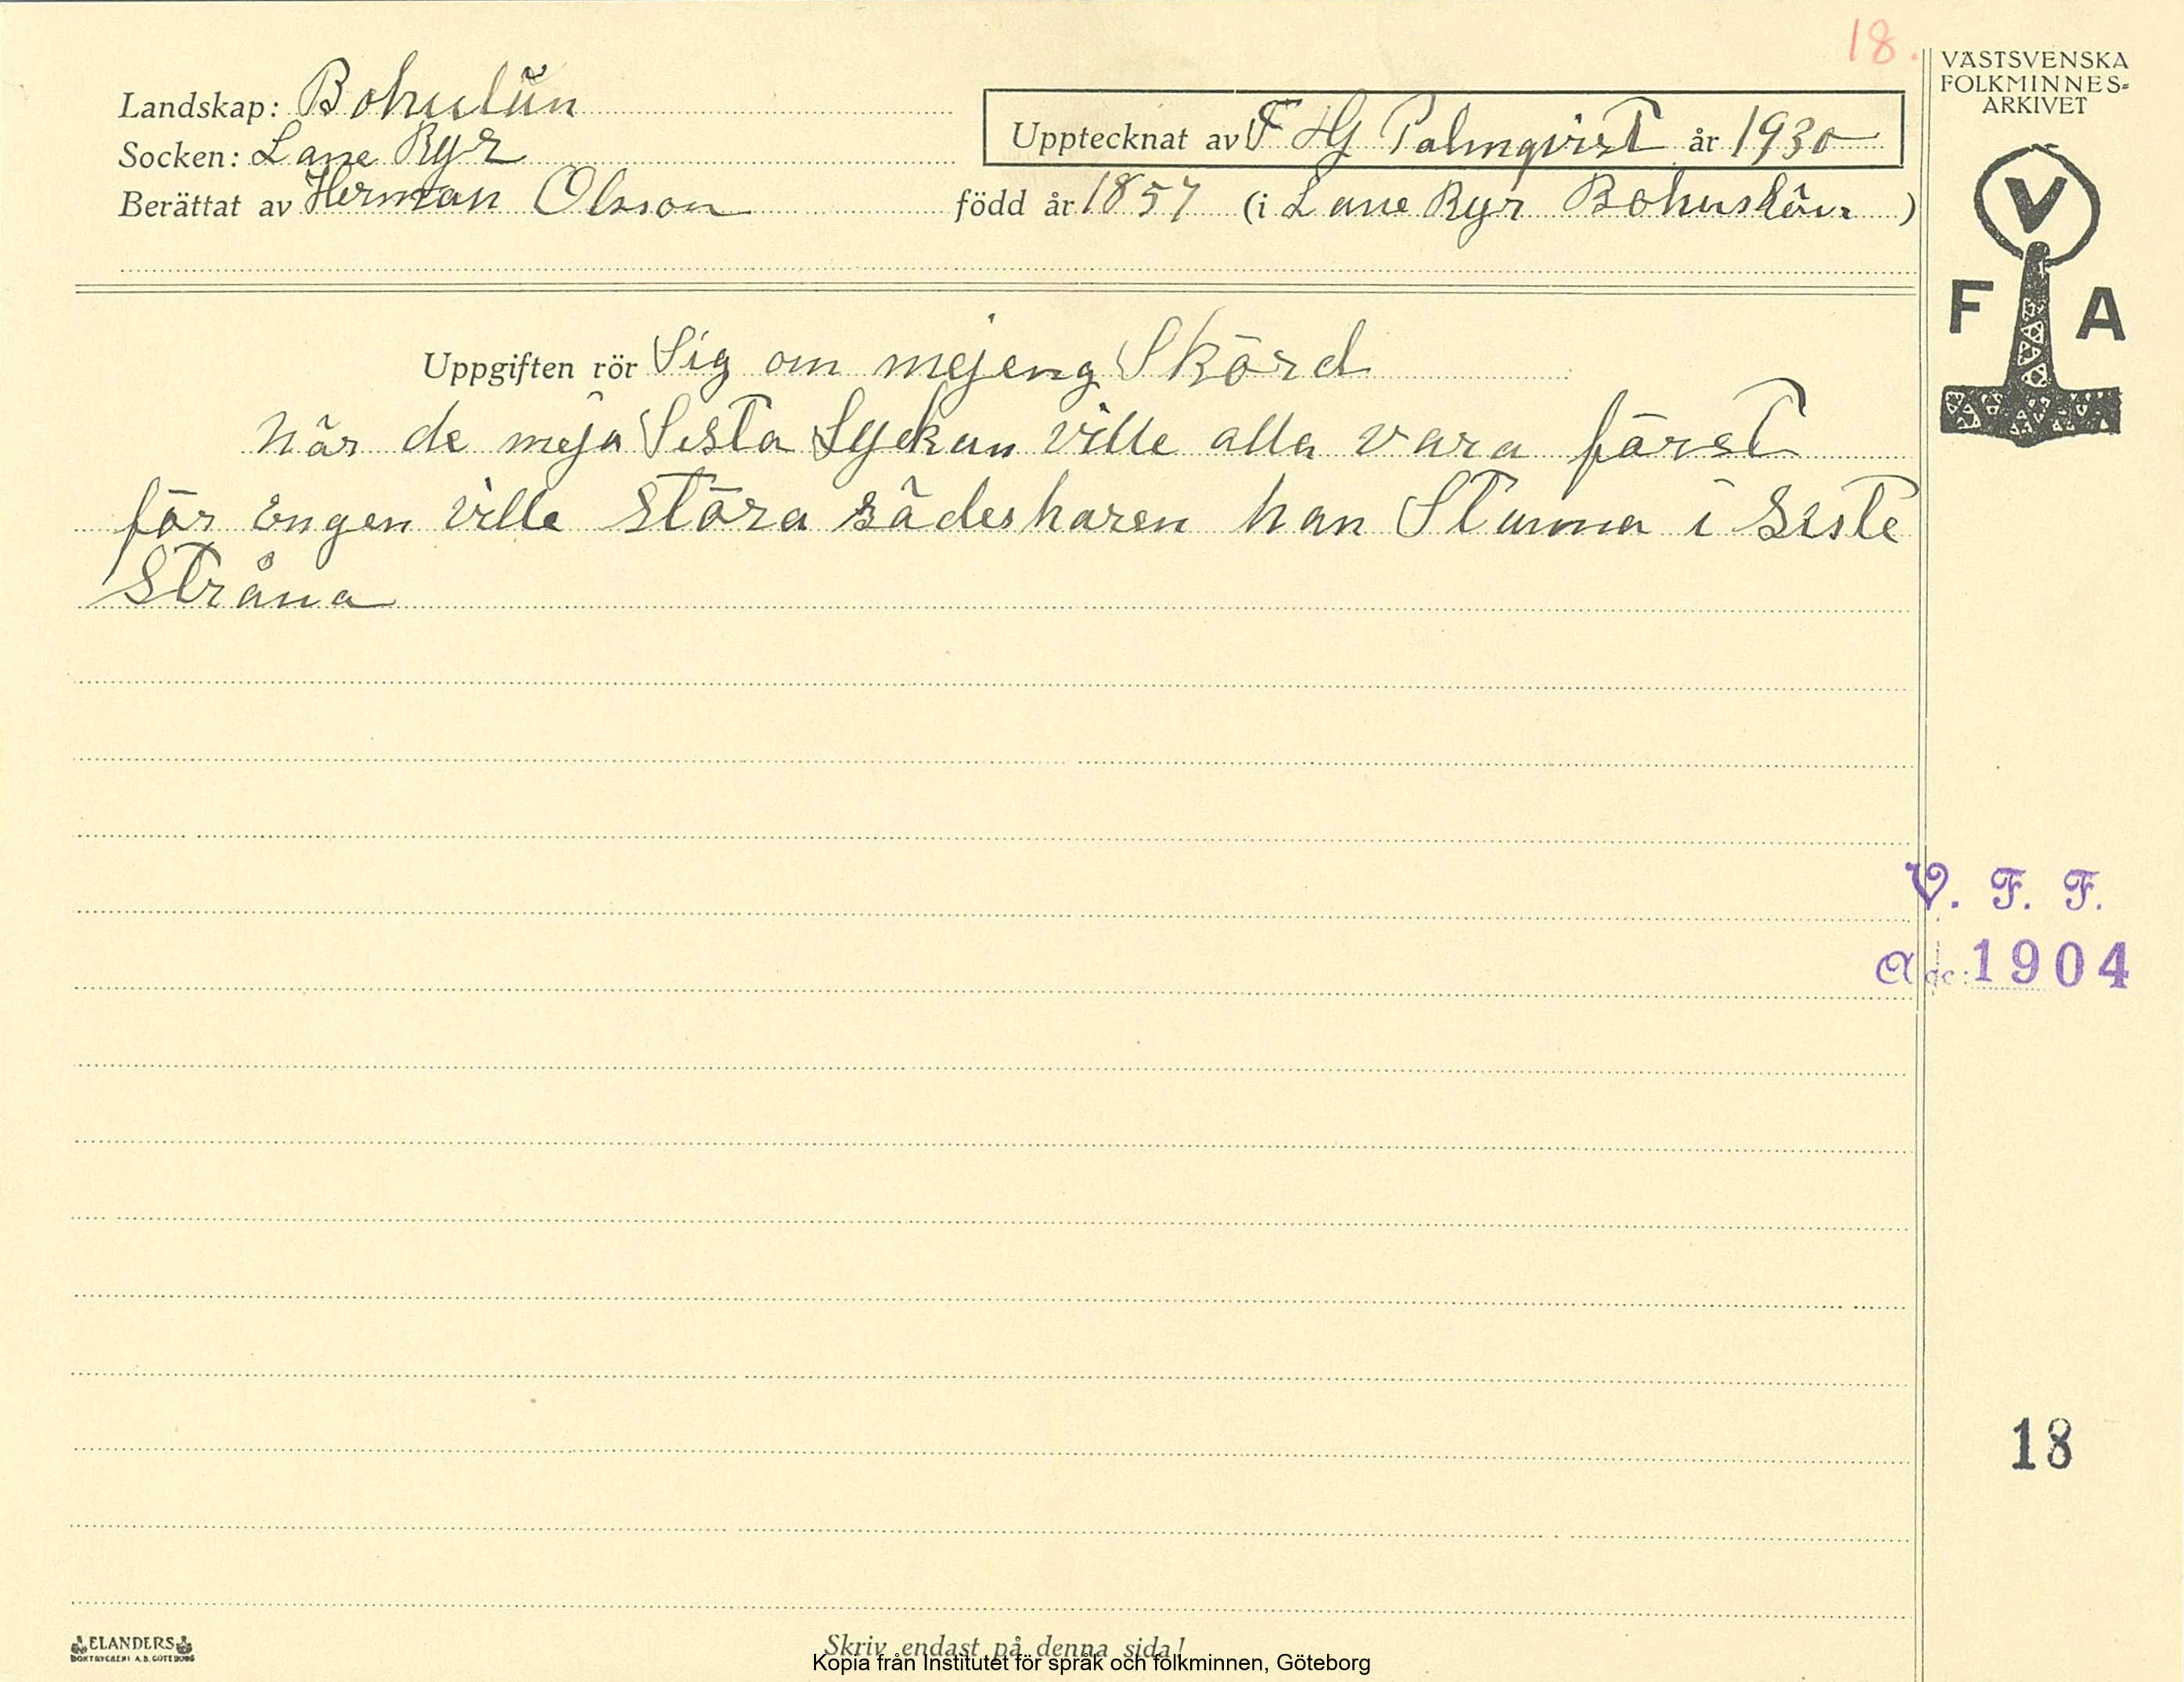 18.
VÄSTSVENSKA
FOLKMINNES-
ARKIVET
Landskap: Bohuslän
Socken: Lane Ryr
Upptecknat av F Hj Palmqvist år 1930
Berättat av Herman Olsson född år 1857 (i Lane Ryr Bohuslän)
V
F A
Uppgiften rör Sig om mejeng Skörd
när de meja Sista Lyckan ville alla vara först
för Engen ville störa sädesharen han Stanna i Siste
Stråna
V. F. F.
Acc: 1904
18
ELANDERS
BOKTRYCKERI A.B. GÖTEBORG
Skriv endast på denna sida!
Kopia från Institutet för språk och folkminnen, Göteborg